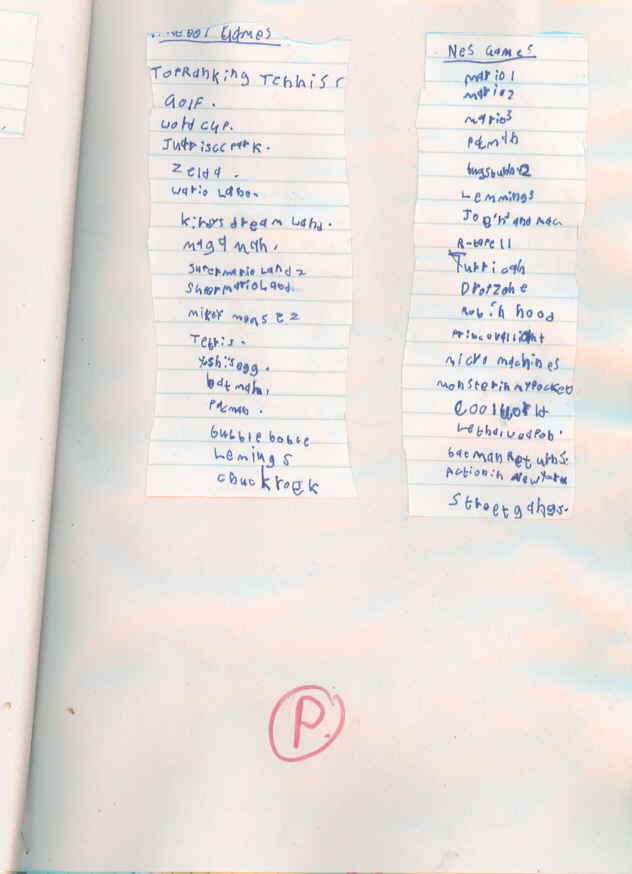 Games
TopRanking Tennis
Golf.
word cup.
Jurrisccpark.
Zelda.
wario Land.
kirbys dream Land.
maga man.
supermario Land 2
Supermario Land.
mikey mouse 2
Tetris.
yoshis egg.
bat man.
pacman.
Bubble boble
Lemings
Chuck rock
Nes Games
mario 1
mario 2
mario 3
pacman
bugsbunny 2
Lemmings
Joe'n and mac
R-tape 11
Turrican
Dropzone
Robin hood
Princevaliant
micro machines
monster in my pocket
Coolworld
Lethal weapon
batman Returns
Action in Newyork
Street gangs.
P.